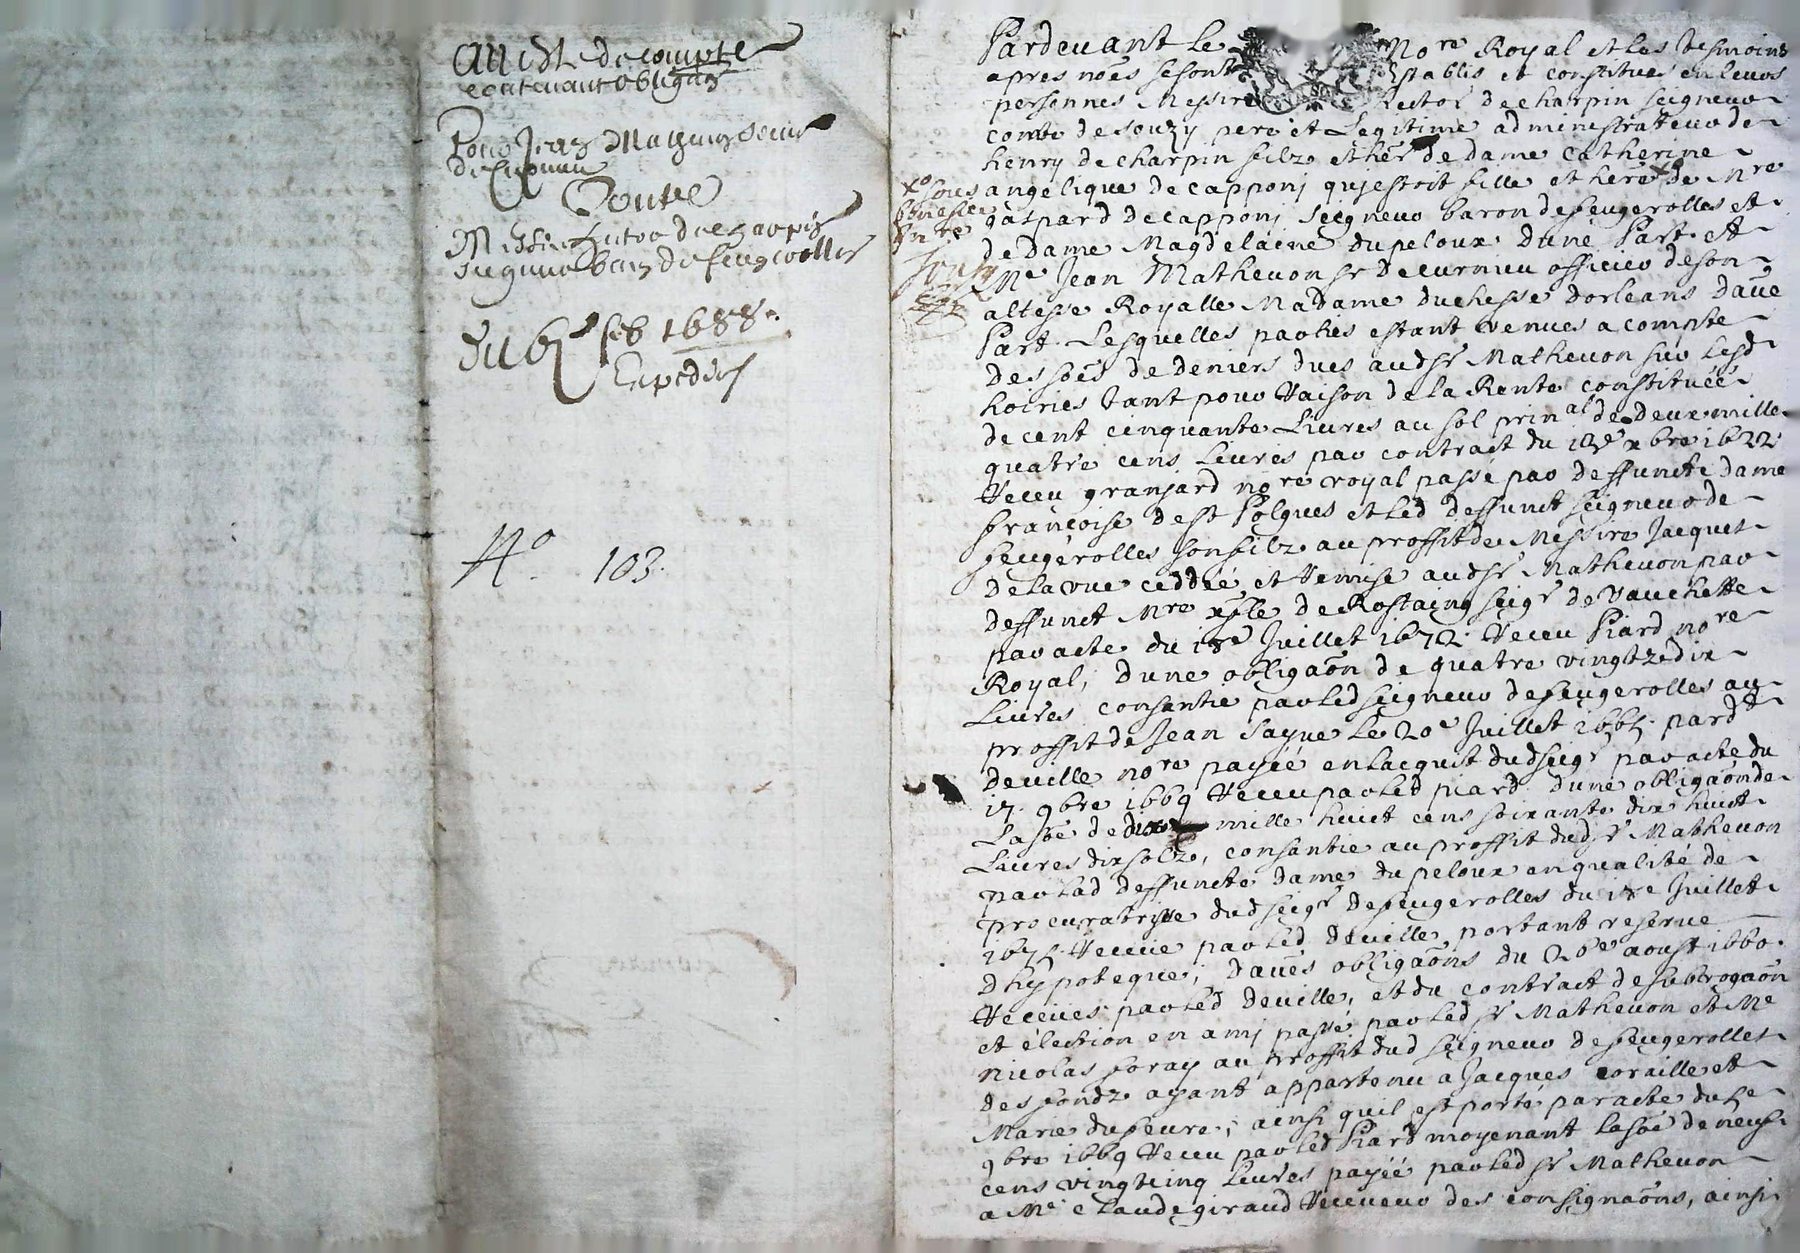 Arreste de compte
contenant obligaōn
Pour Jean Matheuon sieur
de Curnieu
Contre
Messire hector de charpin
seigneur baron de feugerolles
Du 6e feb 1688.
Expedié
No. 103.
Pardeuant le Nore Royal et les tesmoins
apres nōes se sont establis et constitues en leurs
personnes Messire hector de charpin seigneur
comte de souzy pere et Legitime administrateur de
henry de charpin filz et her de dame catherine
angelique de capponj quj estoit fille et here de Mre
gaspard de capponj seigneur baron de feugerolles et
de dame Magdelaine dupeloux dune Part. et
Me Jean Matheuon sr de curnieu officier de son
altesse Royalle Madame duchesse dorleans dauē
Part. Lesquelles parties estant venues a compte
des sōes de deniers dues audsr Matheuon sur lesd
hoiries tant pour raison de la Rente constituée
de cent cinquante Liures au sol prinal de deux mille
quatre cens Liures par contract du xbre 1622
receu granjard nore royal passé par deffuncte dame
françoise de st Polgues et led deffunct seigneur de
feugerolles son filz au proffit de Messire Jacques
de la vue ceddée et remise audsr Matheuon par
deffunct Mre de Rostaing seigr de Vauchette
par acte du 18e Juillet 1672. receu Piard nore
Royal, dune obligaōn de quatre vingtz dix
Liures consentie par led seigneur de feugerolles au
proffit de Jean sayue le 20e Juillet 1665. pard
deuille nore payée en lacquit dudseigr par acte du
17. 9bre 1669 receu par led piard. dune obligaōn de
La sōe de mille huict cens soixante dix huict
Liures dix solz, consantie au proffit dudsr Matheuon
par lad deffuncte dame dupeloux en qualité de
procuratrisse dudseigr de feugerolles du 18e Juillet
1675 receue par led deuille, portant reserue
dhypoteque, dauēs obligaōns du 20e aoust 1660.
receues par led deuille, et du contract de subrogaōn
et élection en ami passé par led sr Matheuon et Me
nicolas foray au proffit dud seigneur de feugerolles
des fondz ayant appartenu a Jacques coraille et
Marie dufeure, ainsi quil est porté par acte du 5e
9bre 1669 receu par led Piard moyenant la sōe de neuf
cens vingtcinq Liures payée par led sr Matheuon
a Me claude giraud receueur des consignaōns, ainsi